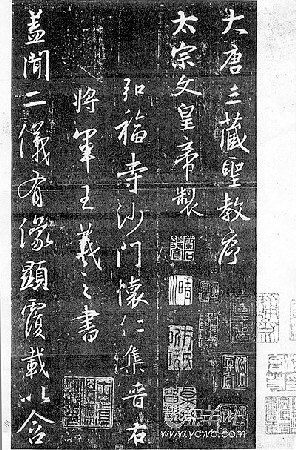 大唐三藏聖教序
太宗文皇帝製
弘福寺沙門懷仁集晉右
將軍王羲之書
蓋聞二儀有像顯覆載以含
www.ycwb.com